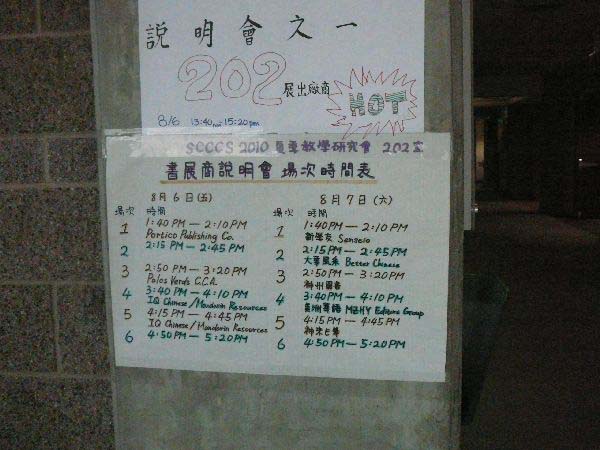 說明會之一
202 展出廠商 HOT
8/6 13:40 pm 15:20 pm
SCCCS 2010 夏季教學研究會 202室
書展商說明會 場次時間表
8月6日(五)
場次 時間
1 1:40 PM — 2:10 PM
Portico Publishing Co.
2 2:15 PM — 2:45 PM
3 2:50 PM — 3:20 PM
Palos Verds C.C.A.
4 3:40 PM — 4:10 PM
IQ Chinese / Mandarin Resources
5 4:15 PM — 4:45 PM
IQ Chinese / Mandarin Resources
6 4:50 PM — 5:20 PM
8月7日(六)
場次 時間
1 1:40 PM — 2:10 PM
新學友 Senseio
2 2:15 PM — 2:45 PM
大華風采 Better Chinese
3 2:50 PM — 3:20 PM
神州圖書
4 3:40 PM — 4:10 PM
美洲華語 MZHY Editors Group
5 4:15 PM — 4:45 PM
6 4:50 PM — 5:20 PM